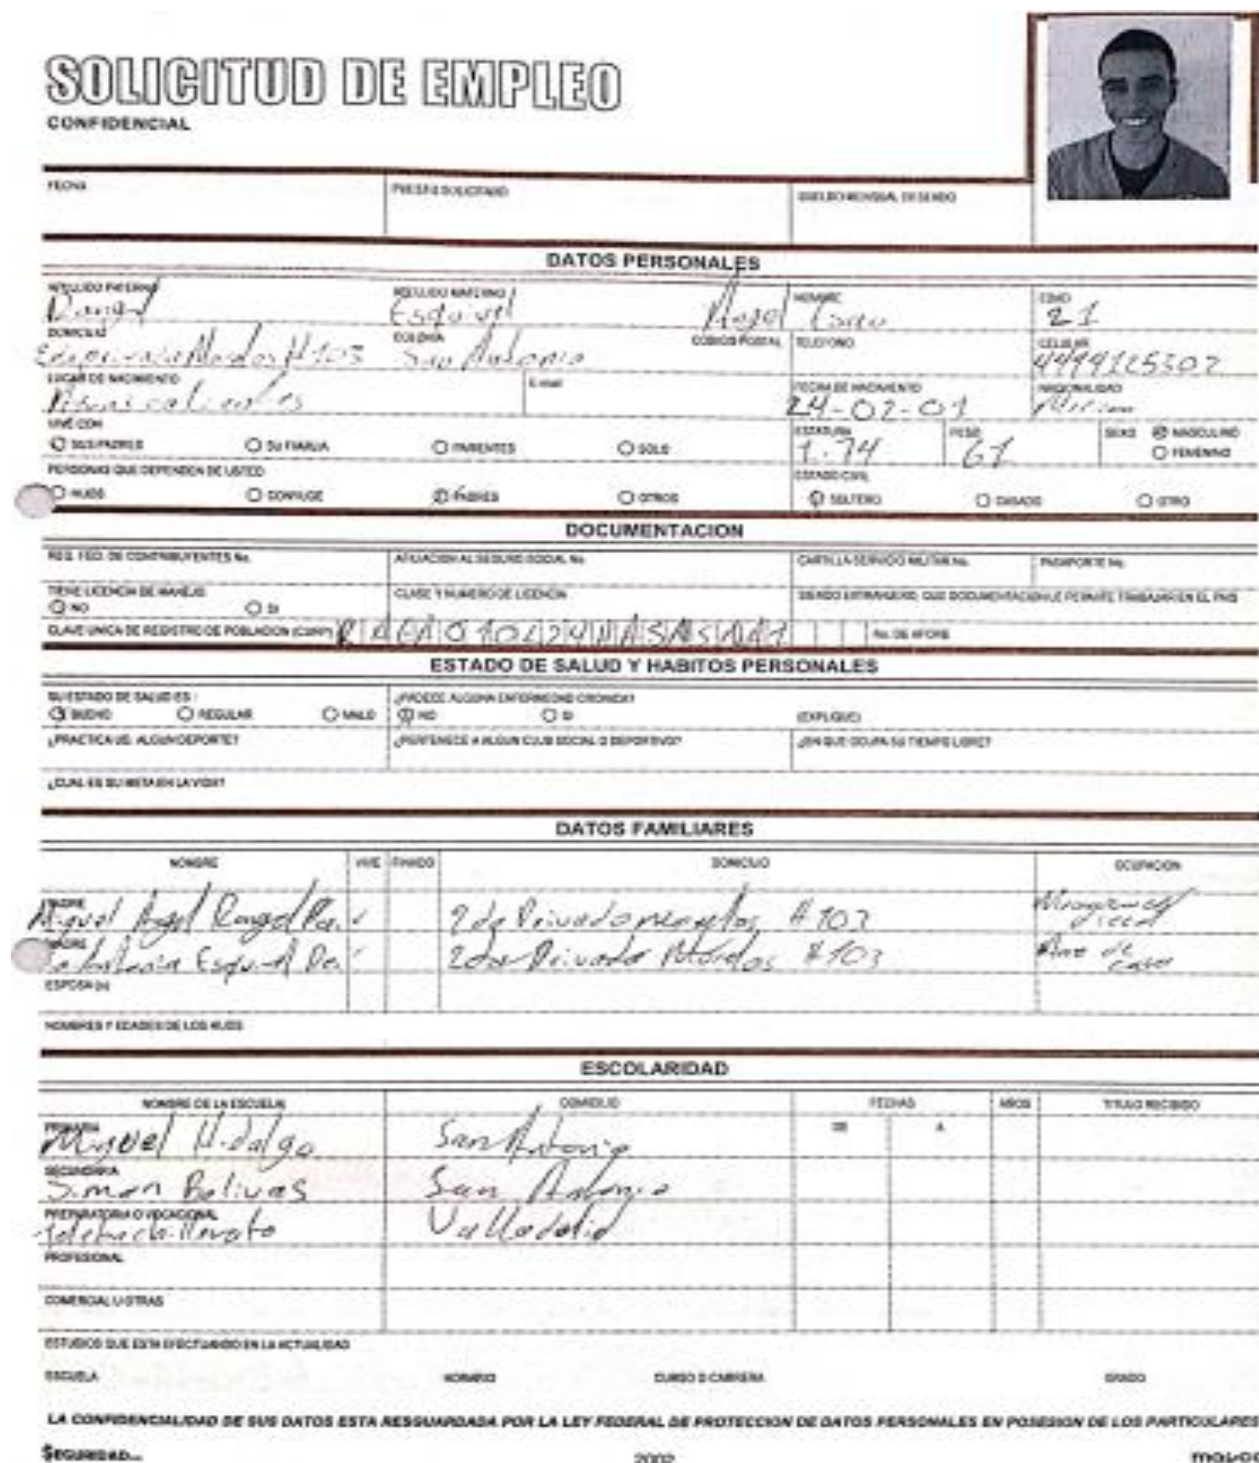 SOLICITUD DE EMPLEO
CONFIDENCIAL
FECHA PUESTO SOLICITADO SUELDO MENSUAL DESEADO
DATOS PERSONALES
APELLIDO PATERNO APELLIDO MATERNO NOMBRE EDAD
Esquivel Angel 21
DOMICILIO COLONIA CODIGO POSTAL TELEFONO CELULAR
#103 San Antonio
LUGAR DE NACIMIENTO E-mail FECHA DE NACIMIENTO NACIONALIDAD
Aguascalientes 24-02-01
VIVE CON ESTATURA PESO SEXO MASCULINO
SUS PADRES SU FAMILIA PARIENTES SOLO 1.74 61 FEMENINO
PERSONAS QUE DEPENDEN DE USTED ESTADO CIVIL
HIJOS CONYUGE PADRES OTROS SOLTERO CASADO OTRO
DOCUMENTACION
REG. FED. DE CONTRIBUYENTES No. AFILIACION AL SEGURO SOCIAL No. CARTILLA SERVICIO MILITAR No. PASAPORTE No.
TIENE LICENCIA DE MANEJO CLASE Y NUMERO DE LICENCIA SIENDO EXTRANJERO, QUE DOCUMENTACION LE PERMITE TRABAJAR EN EL PAIS
NO SI
CLAVE UNICA DE REGISTRO DE POBLACION (CURP) No. DE AFORE
ESTADO DE SALUD Y HABITOS PERSONALES
SU ESTADO DE SALUD ES: ¿PADECE ALGUNA ENFERMEDAD CRONICA?
BUENO REGULAR MALO NO SI (EXPLIQUE)
¿PRACTICA UD. ALGUN DEPORTE? ¿PERTENECE A ALGUN CLUB SOCIAL O DEPORTIVO? ¿EN QUE OCUPA SU TIEMPO LIBRE?
¿CUAL ES SU META EN LA VIDA?
DATOS FAMILIARES
NOMBRE VIVE FINADO DOMICILIO OCUPACION
PADRE
Miguel Angel Rangel 2da Privada #103
MADRE
Esquivel 2da Privada Morelos #103 Ama de casa
ESPOSA (o)
NOMBRES Y EDADES DE LOS HIJOS
ESCOLARIDAD
NOMBRE DE LA ESCUELA DOMICILIO FECHAS AÑOS TITULO RECIBIDO
PRIMARIA DE A
Miguel Hidalgo San Antonio
SECUNDARIA
Simon Bolivas San Antonio
PREPARATORIA O VOCACIONAL
Valladolid
PROFESIONAL
COMERCIAL U OTRAS
ESTUDIOS QUE ESTA EFECTUANDO EN LA ACTUALIDAD
ESCUELA HORARIO CURSO O CARRERA GRADO
LA CONFIDENCIALIDAD DE SUS DATOS ESTA RESGUARDADA POR LA LEY FEDERAL DE PROTECCION DE DATOS PERSONALES EN POSESION DE LOS PARTICULARES
SEGURIDAD 2002